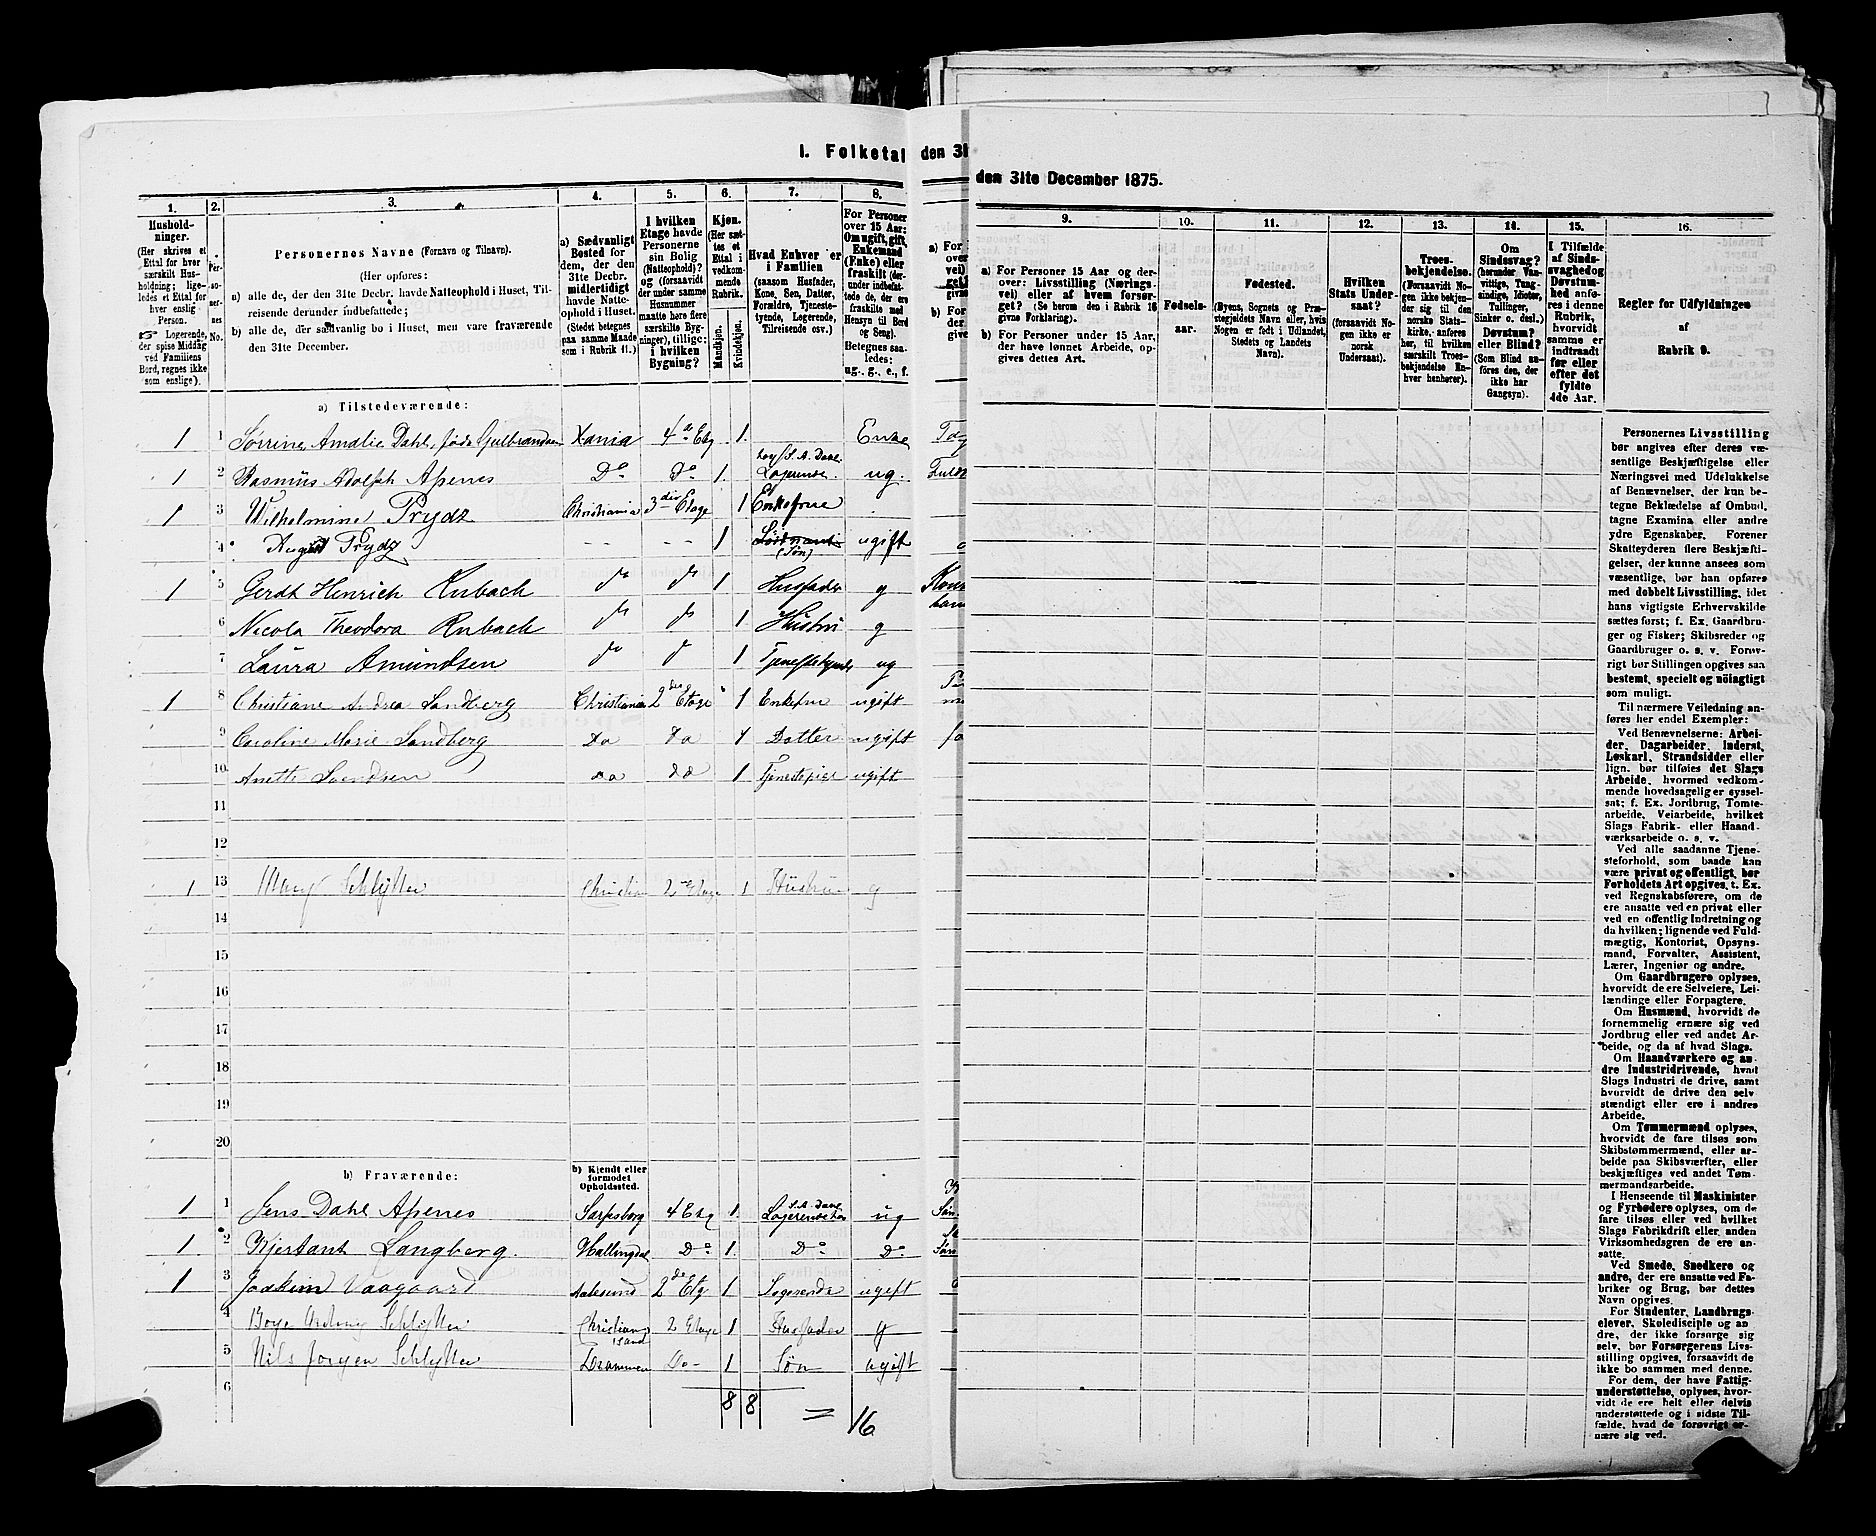 I. Folketal den 31
den 31te December 1875.
1.
Husholdninger.
(Her skrives et
Ettal for hver
særskilt Husholdning;
ligeledes et Ettal for
hver enslig
Person.
Logerende,
der spise Middag
ved Familiens
Bord, regnes ikke
som enslige).
2.
Personernes
No.
3.
Personernes Navne (Fornavn og Tilnavn).
(Her opføres:
a) alle de, der den 31te Decbr. havde Natteophold i Huset, Tilreisende derunder indbefattede;
b) alle de, der sædvanlig bo i Huset, men vare fraværende
den 31te December.
4.
a) Sædvanligt
Bosted for
dem, der den
31te Decbr.
midlertidigt
havde Natteophold i Huset.
(Stedet betegnes
paa samme Maade
som i Rubrik 11.)
5.
I hvilken
Etage havde
Personerne
sin Bolig
(Natteophold)?
og (forsaavidt
der under samme
Husnummer
maatte høre flere
særskilte Bygninger), tillige:
i hvilken
Bygning?
6.
Kjøn.
(Her sættes et
Ettal i
vedkommende
Rubrik.
Mandkjøn.
Kvindekjøn.
7.
Hvad Enhver er
i Familien
(saasom Husfader,
Kone, Søn, Datter,
Forældre, Tjenestetyende, Logerende,
Tilreisende osv.)
8.
For Personer
over 15 Aar:
Om ugift, gift,
Enkemand
(Enke) eller
fraskilt (derunder indbefattede de, der ere
fraskilte med
Hensyn til Bord
og Seng).
Betegnes saaledes:
ug., g., e., f.
9.
a) For Personer 15 Aar og derover: Livsstilling (Næringsvei) eller af hvem forsørget? (Se herom den i Rubrik 16
givne Forklaring).
b) For Personer under 15 Aar,
der have lønnet Arbeide, opgives dettes Art.
10.
Fødselsaar.
11.
Fødested.
(Byens, Sognets og Præstegjeldets Navn eller, hvis
Nogen er født i Udlandet,
Stedets og Landets
Navn).
12.
Hvilken
Stats Undersaat?
(forsaavidt Nogen ikke er
norsk
Undersaat).
13.
Troesbekjendelse.
(Forsaavidt Nogen ikke bekjender sig til den
norske Statskirke, anføres
her, til hvilken
særskilt Troesbekjendelse Enhver henhører).
14.
Om
Sindssvag?
(herunder Vanvittige, Tungsindige, Idioter,
Tullinger,
Sinker o. desl.)
Døvstum?
eller Blind?
(Som Blind anføres den, der
ikke har
Gangsyn).
15.
I Tilfælde
af Sindssvaghed og
Døvstumhed anføres i denne
Rubrik,
hvorvidt
samme er
indtraadt
før eller
efter det
fyldte
4de Aar.
16.
Regler for Udfyldningen
af
Rubrik 9.
a) Tilstedeværende:
1 1 Sørrine Amalie Dahl, født Gulbrandsen Xania 4de Etg 1. Enke
1 2 Rasmus Adolph Apenes Do Do 1. Logerende ug.
1 3 Wilhelmine Prydz Christiania 3die Etage 1 Enkefrue
4 August Prydz - - - - 1 (Søn) ugift
1 5 Gerdt Henrich Rubach do do 1 Husfader g
6 Nicola Theodora Rubach do do 1 Hustru g
7 Laura Amundsen do do 1 ug
1 8 Christiane Andrea Sandberg Christiania 2den Etage 1 Enkefrue ugift
9 Caroline Marie Sandberg Do do 1 Datter ugift
10 Anette Svendsen do do 1 Tjenestepige ugift
11
12
1 13 Mary Schlytter 2 Etage 1 Hustru g
14
15
16
17
18
19
20
b) Fraværende:
b) Kjendt eller
formodet
Opholdssted.
1 1 Jens Dahl Apenes Sarpsborg 4 Etg 1. ug
1 2 Kjerstant Langberg. Hallingdal Do 1. Do Do
1 3 Joakim Vaagaard Aalesund 2de Etg 1 Logerende ugift
4 Schlytter Christiansand 2 Etage 1 Husfader g
5 Nils Jørgen Schlytter Drammen Do - 1 Søn ugift
6
8 8 = 16
Personernes Livsstilling
bør angives efter deres væsentlige Beskjæftigelse eller
Næringsvei med Udelukkelse
af Benævnelser, der kun betegne Beklædelse af Ombud,
tagne Examina eller andre
ydre Egenskaber. Forener
Skatteyderen flere Beskjæftigelser, der kunne ansees som
væsentlige, bør han opføres
med dobbelt Livsstilling, idet
hans vigtigste Erhvervskilde
sættes først; f. Ex. Gaardbruger og Fisker; Skibsreder og
Gaardbruger o. s. v. Forøvrigt bør Stillingen opgives saa
bestemt, specielt og nøiagtigt
som muligt.
Til nærmere Veiledning anføres her endel Exempler:
Ved Benævnelserne: Arbeider, Dagarbeider, Inderst,
Løskarl, Strandsidder eller
lign. bør tilføies det Slags
Arbeide, hvormed vedkommende hovedsagelig er sysselsat; f. Ex. Jordbrug, Tomtearbeide, Veiarbeide, hvilket
Slags Fabrik- eller Haandværksarbeide o. s. v.
Ved alle saadanne Tjenesteforhold, som baade kan
være privat og offentlig, bør
Forholdets Art opgives, t. Ex.
ved Regnskabsførere, om de
ere ansatte ved en privat eller
ved en offentlig Indretning og
da hvilken; lignende ved Fuldmægtig, Kontorist, Opsynsmand, Forvalter, Assistent,
Lærer, Ingeniør og andre.
Om Gaardbrugere oplyses,
hvorvidt de ere Selveiere, Leilændinge eller Forpagtere.
Om Husmænd, hvorvidt de
fornemmelig ernære sig ved
Jordbrug eller ved andet Arbeide, og da af hvad Slags.
Om Haandværkere og andre Industridrivende, hvad
Slags Industri de drive, samt
hvorvidt de drive den selvstændigt eller ere i andres
Arbeide.
Om Tømmermænd oplyses,
hvorvidt de fare tilsøs som
Skibstømmermænd, eller arbeide paa Skibsværfter, eller
beskjæftiges ved andet Tømmermandsarbeide.
I Henseende til Maskinister
og Fyrbødere oplyses, om de
fare tilsøs eller ved hvilket
Slags Fabrikdrift eller anden
Virksomhedsgren de ere ansatte.
Ved Smede, Snedkere og
andre, der ere ansatte ved Fabriker og Brug, bør dettes
Navn opgives.
For Studenter, Landbrugselever, Skoledisciple og andre, der ikke forsørge sig
selv, bør Forsørgerens Livsstilling opgives, forsaavidt de
ikke bo sammen med denne.
For dem, der have Fattigunderstøttelse, oplyses, hvorvidt de ere helt eller delvis
understøttede og i sidste Tilfælde, hvad de forøvrigt ernære sig ved.